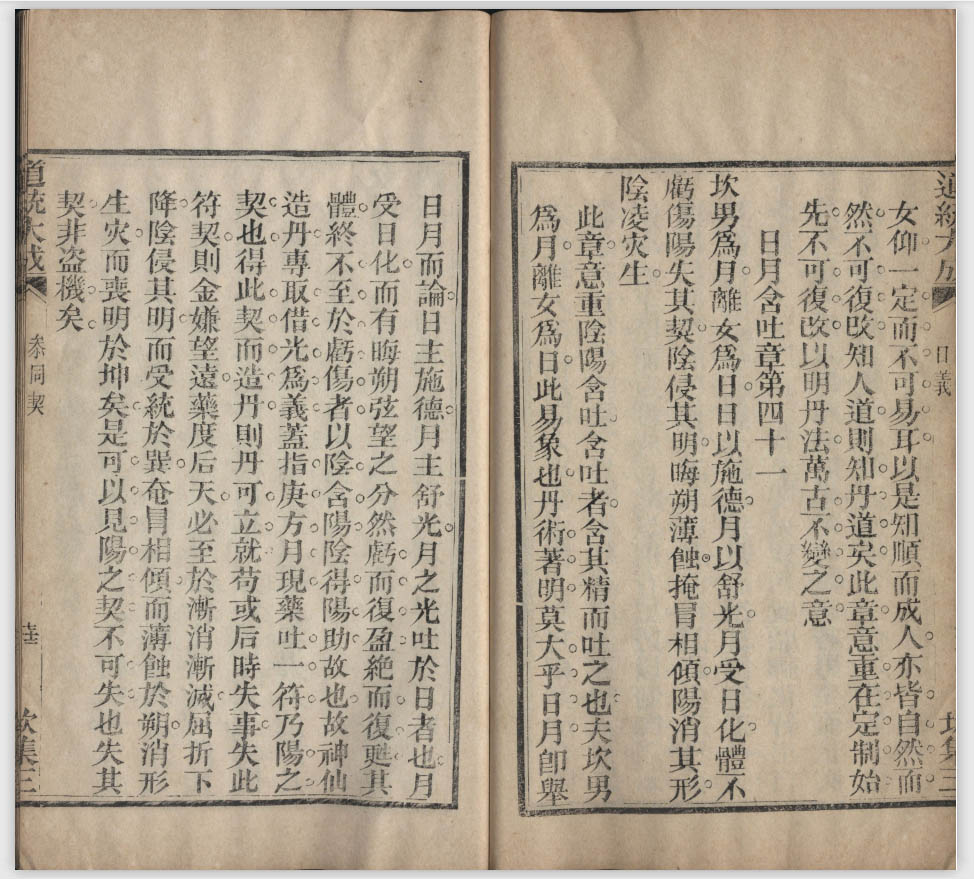 道統大成
女仰一定而不可易耳以是知順而成人亦皆自然而
然不可復改知人道則知丹道矣此章意重在定制始
先不可復改以明丹法萬古不變之意
日月含吐章第四十一
坎男爲月離女爲日日以施德月以舒光月受日化體不
虧傷陽失其契陰侵其明晦朔薄蝕掩冒相傾陽消其形
陰凌灾生
此章意重陰陽含吐含吐者含其精而吐之也夫坎男
爲月離女爲日此易象也丹術著明莫大乎日月卽舉
日月而論日主施德月主舒光月之光吐於日者也月
受日化而有晦朔弦望之分然虧而復盈絶而復甦其
體終不至於虧傷者以陰含陽陰得陽助故也故神仙
造丹專取借光爲義蓋指庚方月現藥吐一符乃陽之
契也得此契而造丹則丹可立就苟或后時失事失此
符契則金嫌望遠藥度后天必至於漸消漸滅屈折下
降陰侵其明而受統於巽奄冒相傾而薄蝕於朔消形
生灾而喪明於坤矣是可以見陽之契不可失也失其
契非盗機矣
道統大成
叅同契
坎集三